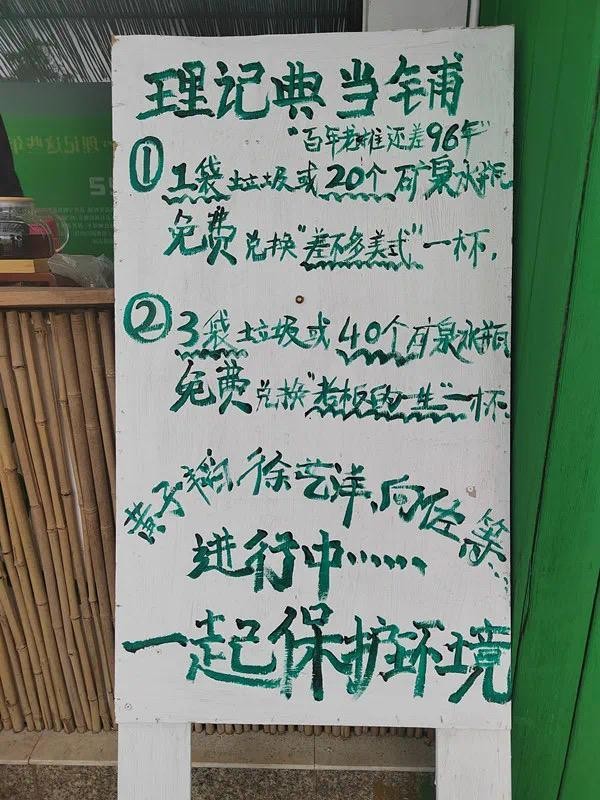 理记典当铺
"百年老摊还差96年"
① 1袋垃圾或20个矿泉水瓶
免费兑换"差不多美式"一杯,
② 3袋垃圾或40个矿泉水瓶
免费兑换"老板的一生"一杯.
黄子韬、徐艺洋、向佐等...
进行中……
一起保护环境
理记这些年